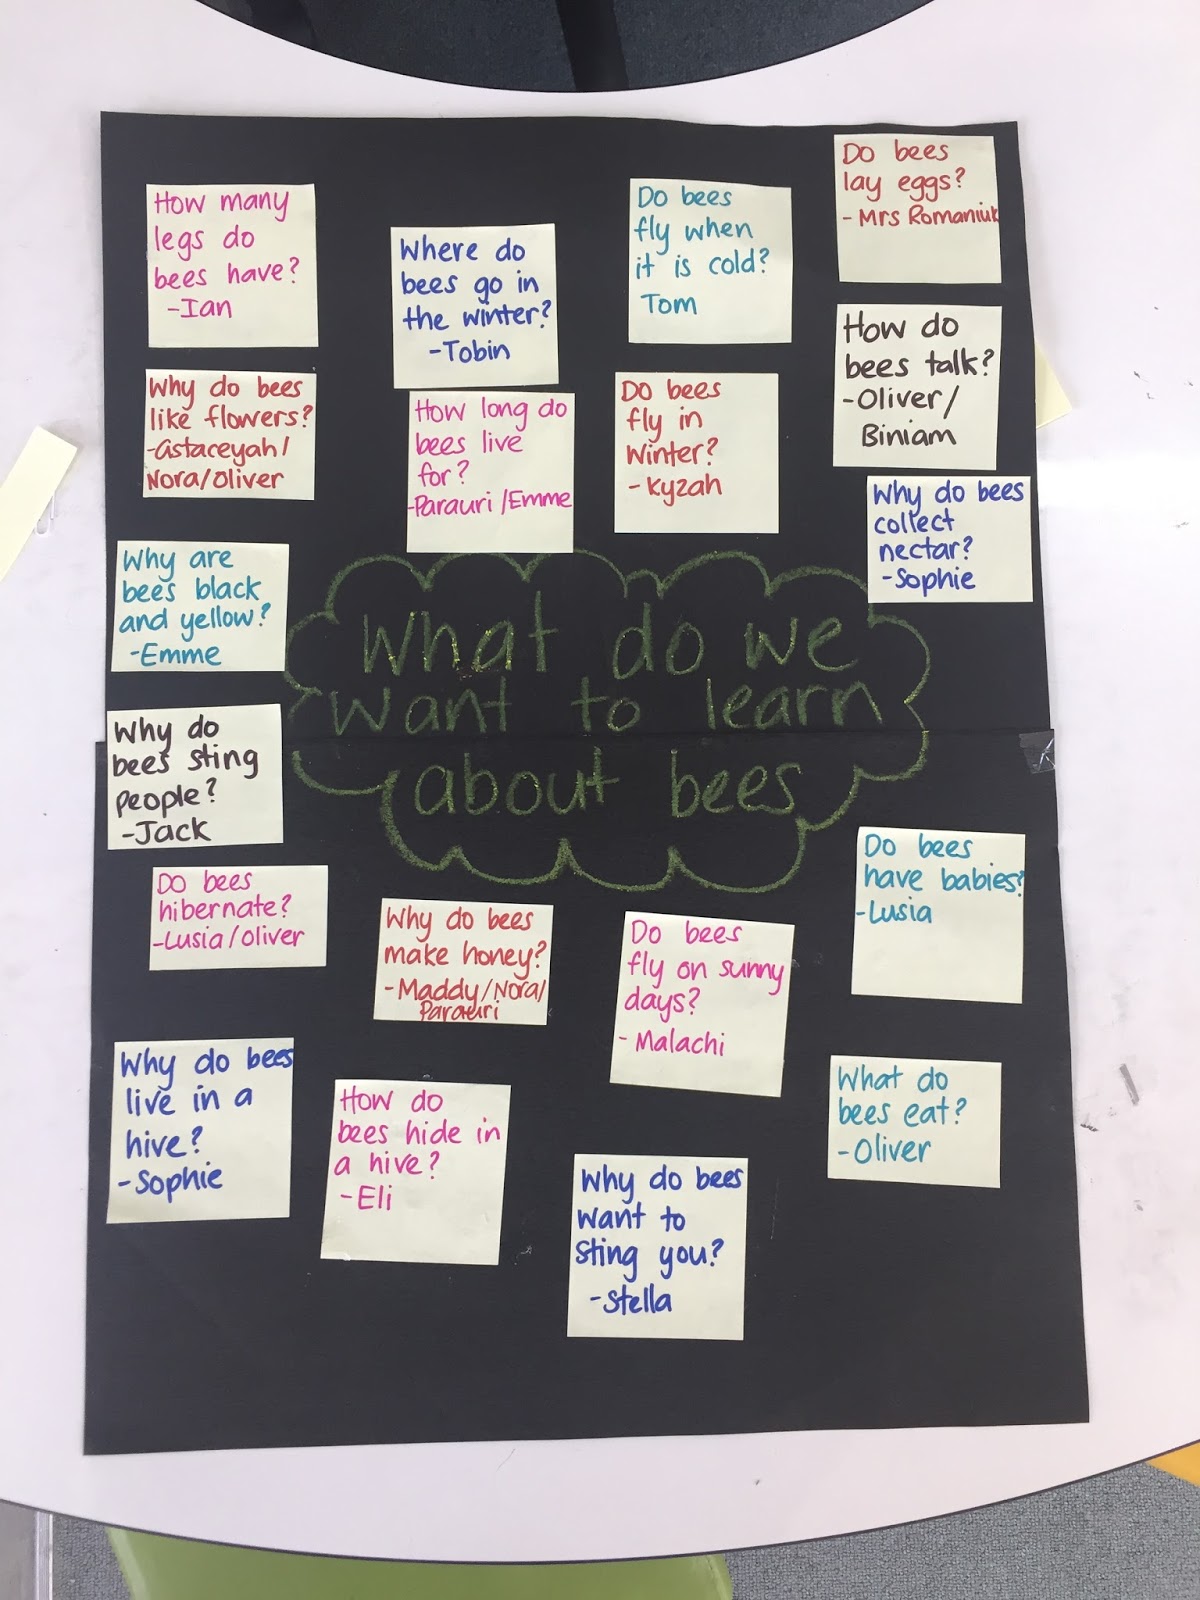 How many
legs do
bees have?
-Ian
Where do
bees go in
the winter?
-Tobin
Do bees
fly when
it is cold?
Tom
Do bees
lay eggs?
- Mrs Romaniuk
Why do bees
like flowers?
-Gstaceyah/
Nora/Oliver
How long do
bees live
for?
-Parauri/Emme
Do bees
fly in
winter?
- Kyzah
How do
bees talk?
-Oliver/
Biniam
Why do bees
collect
nectar?
-Sophie
Why are
bees black
and yellow?
-Emme
What do we
want to learn
about bees
Why do
bees sting
people?
-Jack
Do bees
hibernate?
-Lusia/Oliver
Why do bees
make honey?
-Maddy/Nora/
Parauri
Do bees
fly on sunny
days?
- Malachi
Do bees
have babies?
-Lusia
Why do bees
live in a
hive?
-Sophie
How do
bees hide in
a hive?
-Eli
Why do bees
want to
sting you?
-Stella
What do
bees eat?
-Oliver